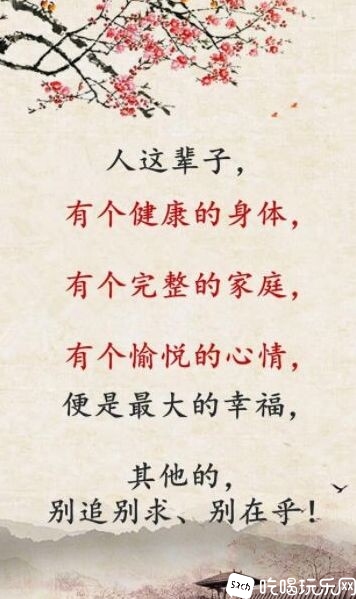 人这辈子，
有个健康的身体，
有个完整的家庭，
有个愉悦的心情，
便是最大的幸福，
其他的，
别追别求、别在乎！
5ach 吃喝玩乐网